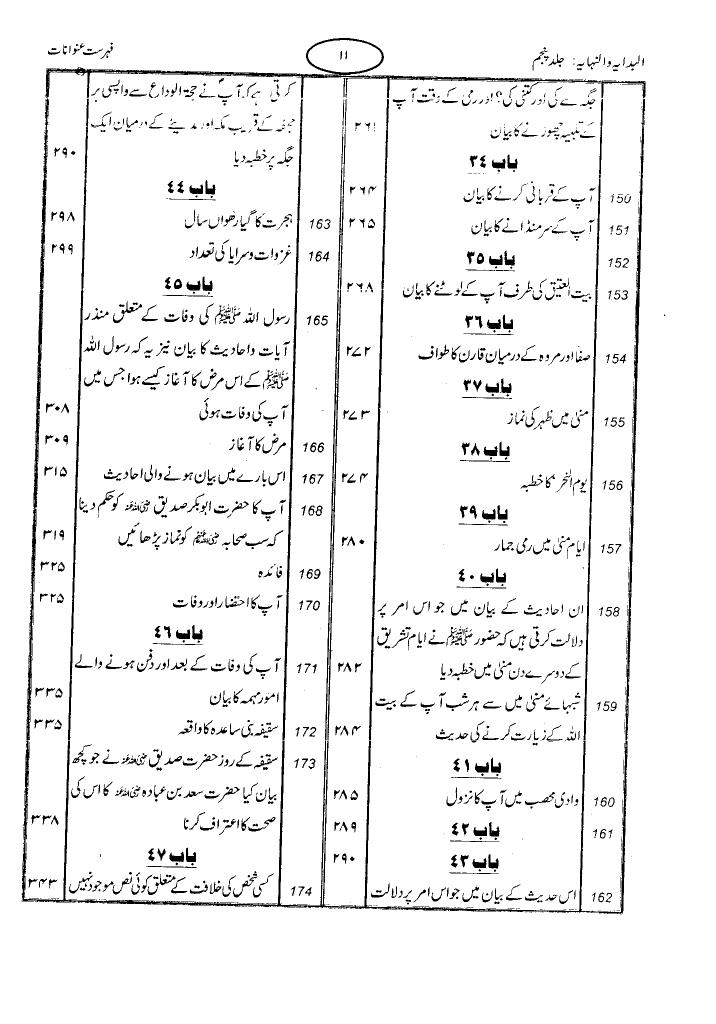 البدایہ والنہایہ: جلد پنجم
۱۱
فہرست عنوانات
جگہ سے کی اور کتنی کی؟ اور رمی کے وقت آپ
کے تلبیہ چھوڑنے کا بیان ۲۶۱
باب ۳۴
150 آپ کے قربانی کرنے کا بیان ۲۶۴
151 آپ کے سر منڈانے کا بیان ۲۶۵
152 باب ۳۵
153 بیت العتیق کی طرف آپ کے لوٹنے کا بیان ۲۶۸
باب ۳۶
154 صفا اور مروہ کے درمیان قارن کا طواف ۲۷۲
باب ۳۷
155 منیٰ میں ظہر کی نماز ۲۷۳
باب ۳۸
156 یوم النحر کا خطبہ ۲۷۴
باب ۳۹
157 ایام منیٰ میں رمی جمار ۲۸۰
باب ۴۰
158 ان احادیث کے بیان میں جو اس امر پر
دلالت کرتی ہیں کہ حضور ﷺ نے ایام تشریق
کے دوسرے دن منیٰ میں خطبہ دیا ۲۸۲
159 شبہائے منیٰ میں سے ہر شب آپ کے بیت
اللہ کے زیارت کرنے کی حدیث ۲۸۴
باب ۴۱
160 وادی محصب میں آپ کا نزول ۲۸۵
161 باب ۴۲ ۲۸۹
باب ۴۳ ۲۹۰
162 اس حدیث کے بیان میں جو اس امر پر دلالت
کرتی ہے کہ آپ نے حجۃ الوداع سے واپسی پر
جحفہ کے قریب مکہ اور مدینے کے درمیان ایک
جگہ پر خطبہ دیا ۲۹۰
باب ۴۴
163 ہجرت کا گیارھواں سال ۲۹۸
164 غزوات و سرایا کی تعداد ۲۹۹
باب ۴۵
165 رسول اللہ ﷺ کی وفات کے متعلق منذر
آیات و احادیث کا بیان نیز یہ کہ رسول اللہ
ﷺ کے اس مرض کا آغاز کیسے ہوا جس میں
آپ کی وفات ہوئی ۳۰۸
166 مرض کا آغاز ۳۰۹
167 اس بارے میں بیان ہونے والی احادیث ۳۱۵
168 آپ کا حضرت ابوبکر صدیق رضی اللہ عنہ کو حکم دینا
کہ سب صحابہ رضی اللہ عنہم کو نماز پڑھائیں ۳۱۹
169 فائدہ ۳۲۵
170 آپ کا احتضار اور وفات ۳۲۵
باب ۴۶
171 آپ کی وفات کے بعد اور دفن ہونے والے
امور مہمہ کا بیان ۳۳۵
172 سقیفہ بنی ساعدہ کا واقعہ ۳۳۵
173 سقیفہ کے روز حضرت صدیق رضی اللہ عنہ نے جو کچھ
بیان کیا حضرت سعد بن عبادہ رضی اللہ عنہ کا اس کی
صحت کا اعتراف کرنا ۳۳۸
باب ۴۷
174 کسی شخص کی خلافت کے متعلق کوئی نص موجود نہیں ۳۴۳